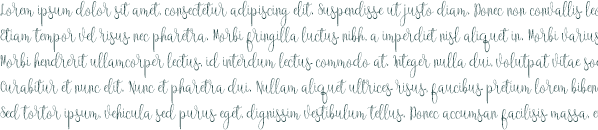 Lorem ipsum dolor sit amet, consectetur adipiscing elit. Suspendisse ut justo diam. Donec non convallis leo
Etiam tempor vel risus nec pharetra. Morbi fringilla luctus nibh, a imperdiet nisl aliquet in. Morbi varius
Morbi hendrerit ullamcorper lectus, id interdum lectus commodo at. Integer nulla dui, volutpat vitae
Curabitur et nunc elit. Nunc et pharetra dui. Nullam aliquet ultrices risus, faucibus pretium lorem
Sed tortor ipsum, vehicula sed purus eget, dignissim vestibulum tellus. Donec accumsan facilisis massa,